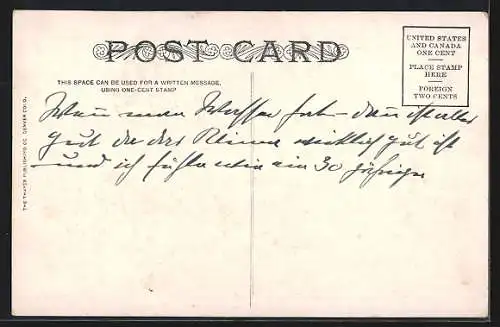 POST CARD
THIS SPACE CAN BE USED FOR A WRITTEN MESSAGE,
USING ONE-CENT STAMP
UNITED STATES
AND CANADA
ONE CENT
PLACE STAMP
HERE
FOREIGN
TWO CENTS
THE THAYER PUBLISHING CO. DENVER COLO.
Wenn man Wasser hat - dann ist alles
gut da das Klima wirklich gut ist
- und ich fühle wie ein 30 jähriger